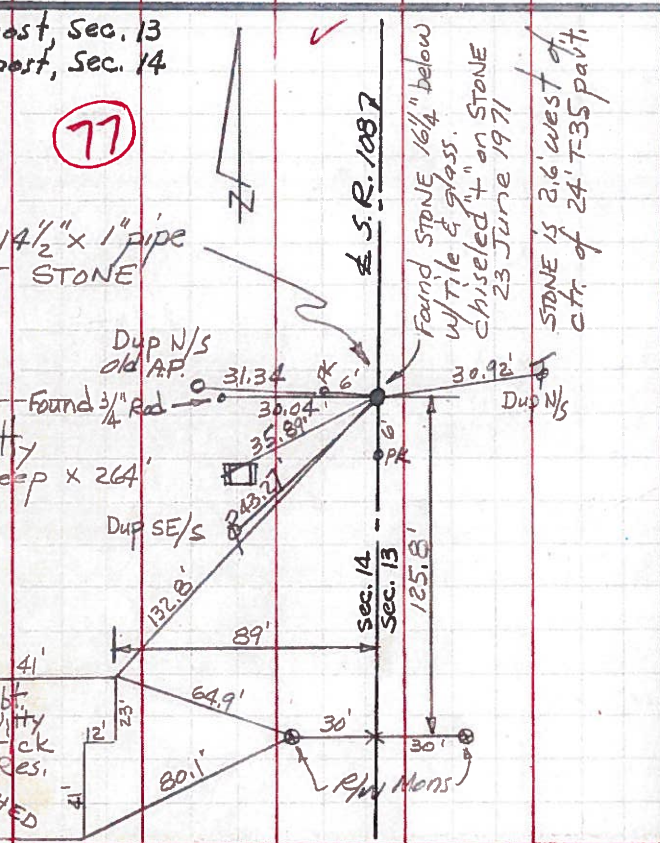 ost, Sec. 13
ost, Sec. 14
77
N
14½" x 1" pipe
STONE
℄ S.R. 1087
Found STONE 16¼" below
w/Tile & glass.
Chiseled "+" on STONE
23 June 1971
STONE is 2.6' west of
ctr. of 24' T-35 pavt.
Dup N/S
old A.P.
31.34
6'
30.92'
Dup N/S
Found ¾" Rod
30.04'
35.89'
6'
PK
eep x 264'
43.27'
Dup SE/S
132.8'
Sec. 14
Sec. 13
125.8'
89'
41'
64.9'
23'
12'
ck
Res.
30'
30'
80.1'
41'
R/W Mons